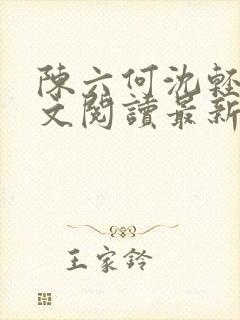 陳六何沈輕
文閱讀最新
王家鈴